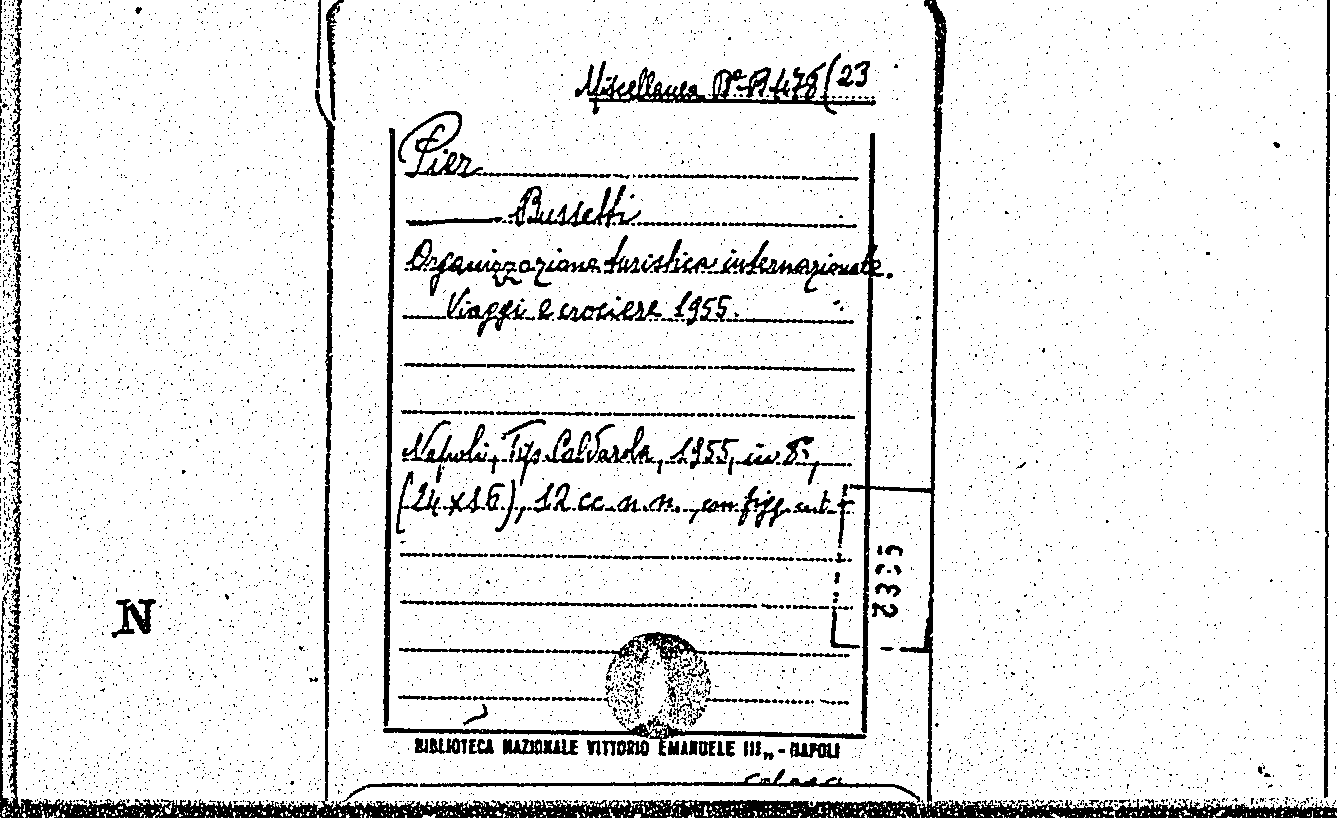 Miscellanea Bª B 478(23
Pier
Bussetti
Organizzazione turistica internazionale.
Viaggi e crociere 1955.
Napoli, Tip. Caldarola, 1955, in 8º,
(24x16), 12 cc. n. n., con figg. n. t.
2335
N
BIBLIOTECA NAZIONALE VITTORIO EMANUELE III„ - NAPOLI